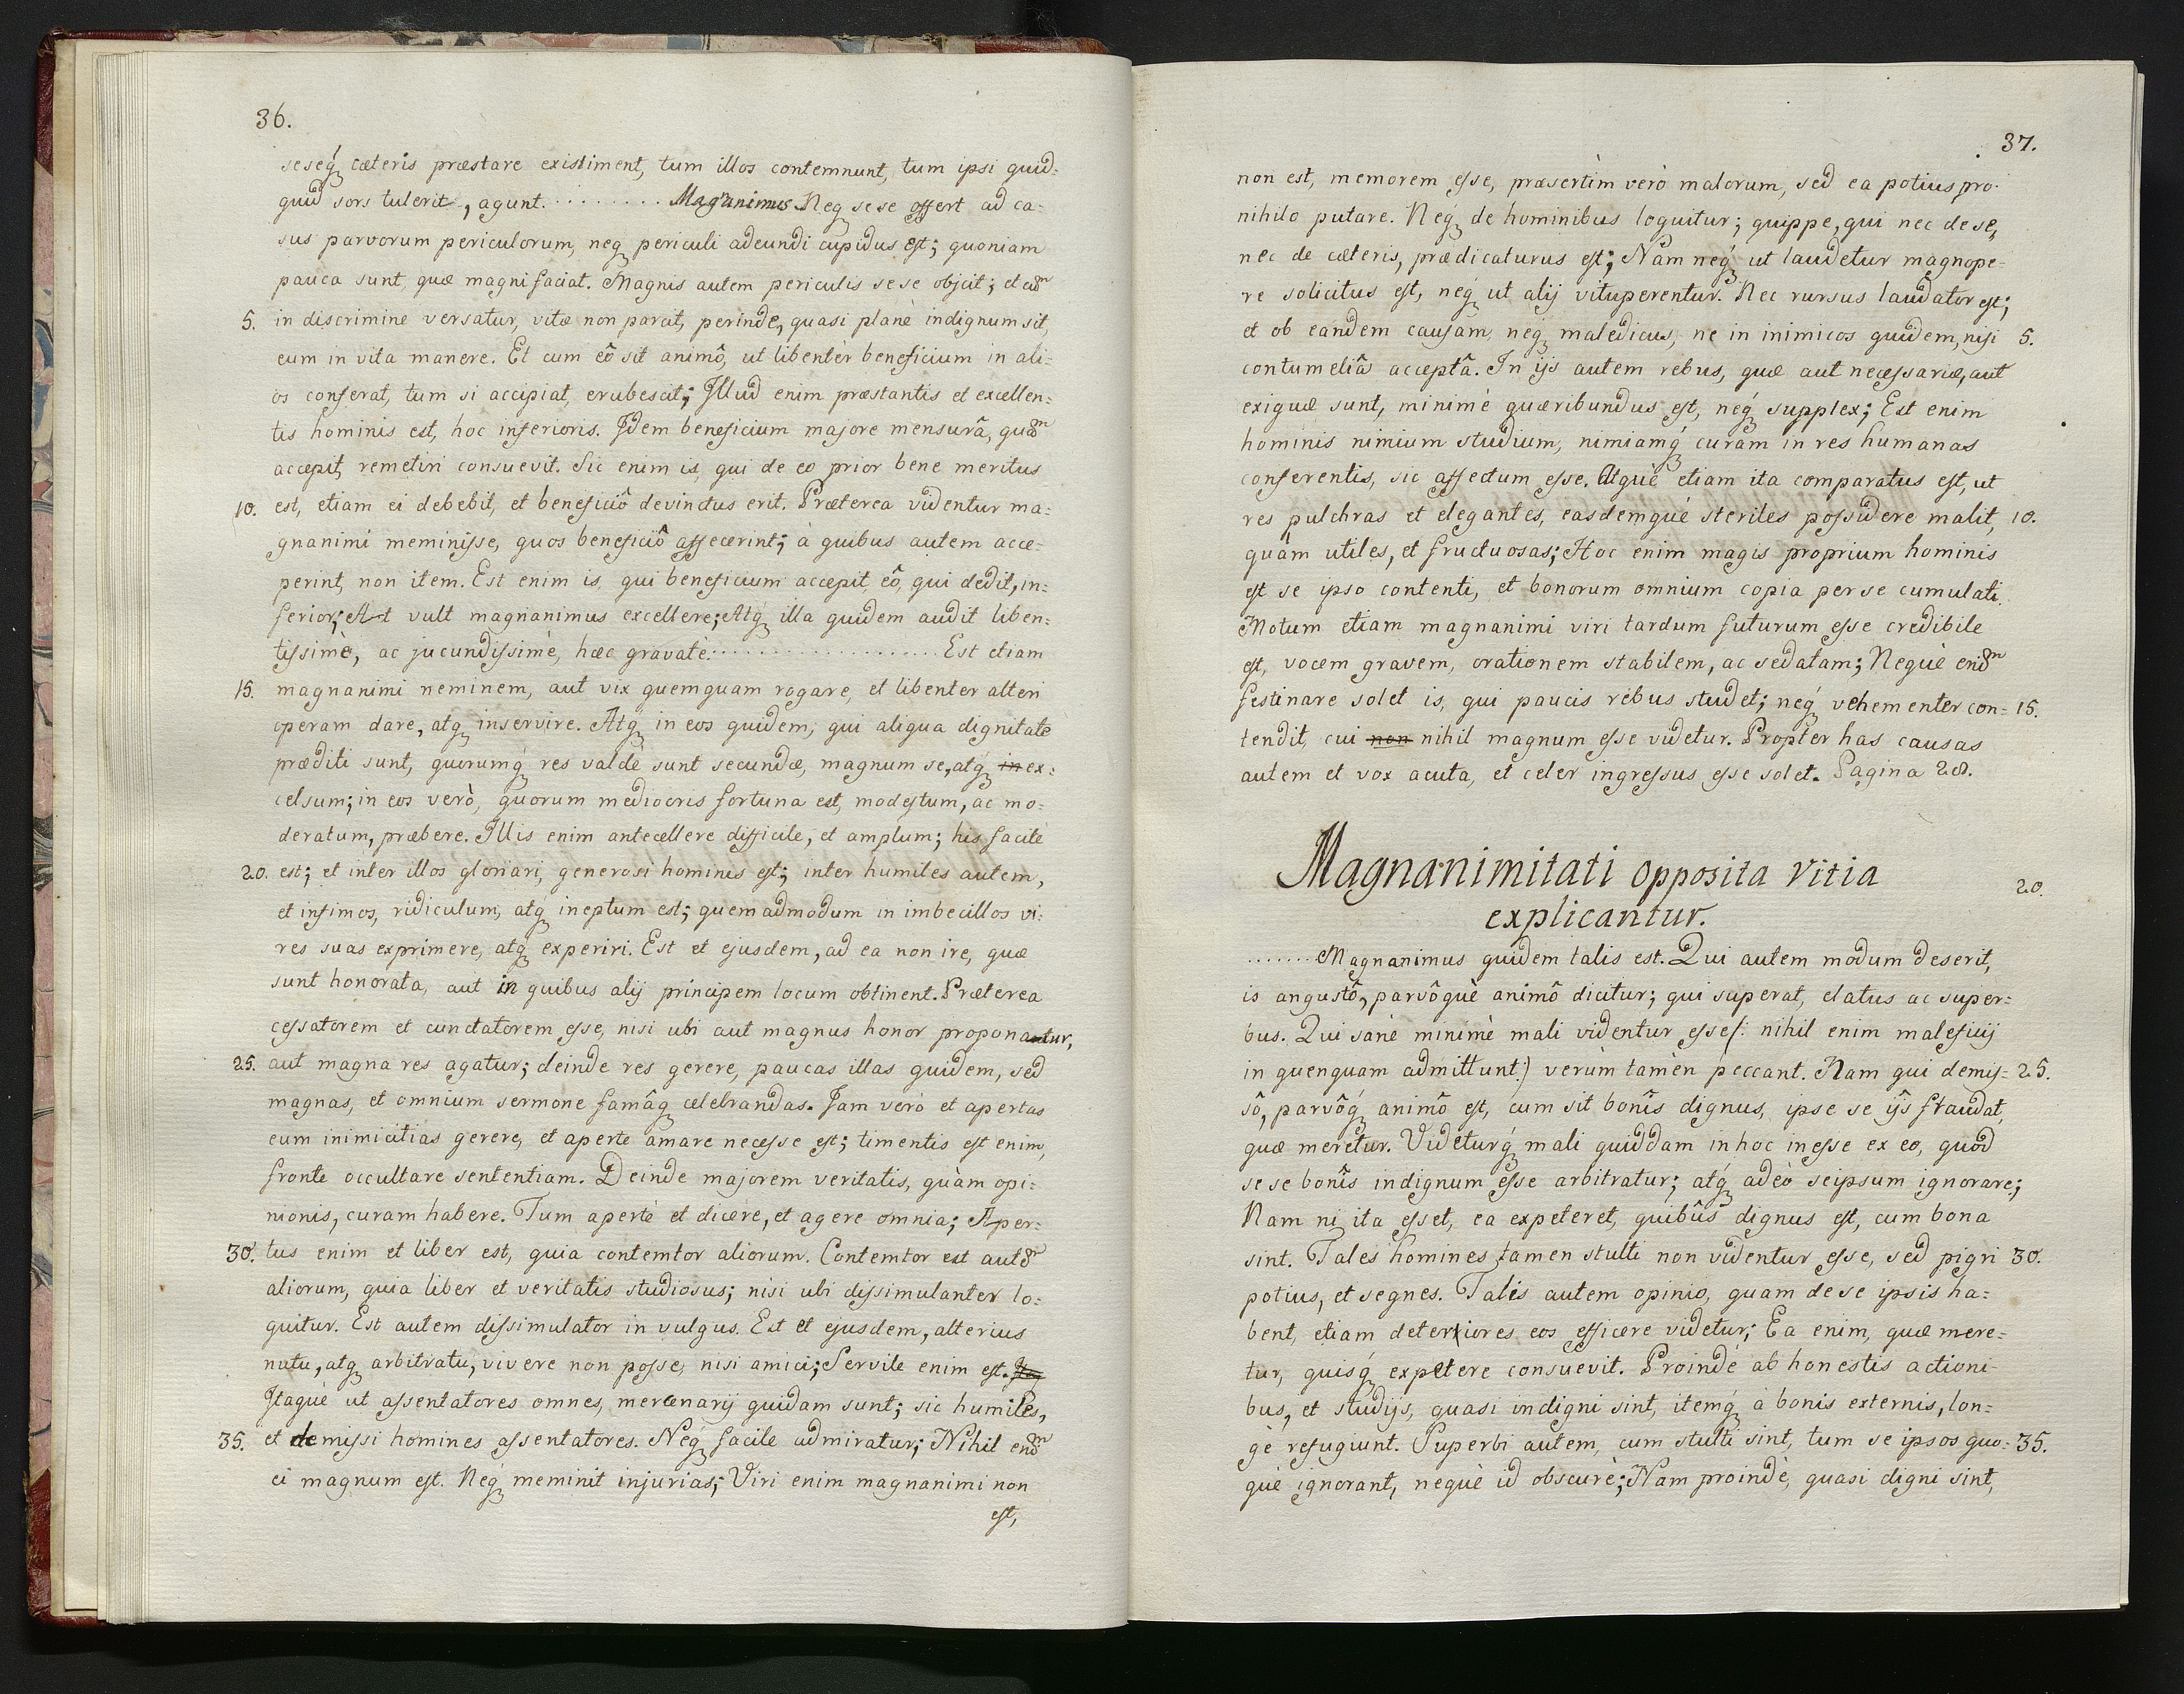 36.
seseq́ꝫ cæteris præstare existiment, tum illos contemnunt, tum ipsi quid=
quid sors tulerit, agunt. ········· Magnanimus Neqꝫ sese offert ad ca=
sus parvorum periculorum, neqꝫ periculi adeundi cupidus est; quoniam
pauca sunt, quæ magni faciat. Magnis autem periculis sese objcit; et cũm
5. in discrimine versatur, vitæ non parcit, perinde, quasi planè indignum sit,
eum in vita manere. Et cum eô sit animô, ut libentèr beneficium in ali=
os conferat, tum si accipiat, erubescit; Illud enim præstantis et excellen=
tis hominis est, hoc inferioris. Idem beneficium majore mensurâ, quàm
accepit, remetiri consuevit. Sic enim is, qui de eo prior bene meritus
10. est, etiam ei debebit, et beneficiô devinctus erit. Præterea videntur ma=
gnanimi meminisse, quos beneficiô affecerint; à quibus autem acce=
perint, non item. Est enim is, qui beneficium accepit, eô, qui dedit, in=
ferior; At vult magnanimus excellere; Atq́ꝫ illa quidem audit liben=
tissimè, ac jucundissimè, hæc gravatè. ··················· Est etiam
15. magnanimi neminem, aut vix quemquam rogare, et libenter alteri
operam dare, atqꝫ inservire. Atqꝫ in eos quidem, qui aliqua dignitate
præditi sunt, quorumq́ꝫ res valdè sunt secundæ, magnum se, atq́ꝫ in ex=
celsum; in eos verò, quorum mediocris fortuna est, modestum, ac mo=
deratum, præbere. Illis enim antecellere difficile, et amplum; his facile
20. est; et inter illos gloriari, generosi hominis est; inter humiles autem,
et infimos, ridiculum, atq́ꝫ ineptum est; quemadmodum in imbecillos vi=
res suas exprimere, atqꝫ experiri. Est et ejusdem, ad ea non ire, quæ
sunt honorata, aut in quibus alij principem locum obtinent. Præterea
cessatorem et cunctatorem esse, nisi ubi aut magnus honor proponantur,
25. aut magna res agatur; deinde res gerere, paucas illas quidem, sed
magnas, et omnium sermone famâqꝫ celebrandas. Jam verò et apertas
eum inimicitias gerere, et aperte amare necesse est; timentis est enim,
fronte occultare sententiam. Deinde majorem veritatis, quàm opi=
nionis, curam habere. Tum apertè et dicere, et agere omnia; Aper=
30. tus enim et liber est, quia contemtor aliorum. Contemtor est autẽm
aliorum, quia liber et veritatis studiosus; nisi ubi dissimulanter lo=
quitur. Est autem dissimulator in vulgus. Est et ejusdem, alterius
nutu, atqꝫ arbitratu, vivere non posse, nisi amici; Servile enim est.
Itaquè ut assentatores omnes, mercenarij quidam sunt; sic humiles,
35. et demissi homines assentatores. Neq́ꝫ facile admiratur; Nihil enĩm
ei magnum est. Neq́ꝫ meminit injurias; Viri enim magnanimi non
est,
37.
non est, memorem esse, præsertìm verò malorum, sed ea potius pro
nihilo putare. Neq́ꝫ de hominibus loquitur; quippe, qui nec de se,
nec de cæteris, prædicaturus est; Nam neq́ꝫ ut laudetur magnope=
re solicitus est, neq́ꝫ ut alij vituperentur. Nec rursus laudator est;
et ob eandem causam, neqꝫ maledicus, ne in inimicos quidem, nisi 5.
contumeliâ acceptâ. In ijs autem rebus, quæ aut necessariæ, aut
exiguæ sunt, minimè quæribundus est, neq́ꝫ supplex; Est enim
hominis nimium studium, nimiamq́ꝫ curam in res humanas
conferentis, sic affectum esse. Atquè etiam ita comparatus est, ut
res pulchras et elegantes, easdemquè steriles possidere malit, 10.
quàm utiles, et fructuosas; Hoc enim magis proprium hominis
est se ipso contenti, et bonorum omnium copia per se cumulati.
Motum etiam magnanimi viri tardum futurum esse credibile
est, vocem gravem, orationem stabilem, ac sedatam; Nequè enĩm
festinare solet is, qui paucis rebus studet; neq́ꝫ vehementer con= 15.
tendit, cui non nihil magnum esse videtur. Proptèr has causas
autem et vox acuta, et celer ingressus esse solet. Pagina 28.
Magnanimitati opposita Vitia
20.
explicantur.
······· Magnanimus quidem talis est. Qui autem modum deserit,
is angustô, parvôquè animô dicitur; qui superat, elatus ac super=
bus. Qui sanè minimè mali videntur esse (: nihil enim maleficij
in quenquam admittunt:) verùm tamèn peccant. Nam qui demis= 25.
sô, parvôq́ꝫ animô est, cum sit bonîs dignus, ipse se ijs fraudat,
quæ meretur. Videturq́ꝫ mali quiddam in hoc inesse ex eo, quod
sese bonîs indignum esse arbitratur; atq́ꝫ adeò seipsum ignorare;
Nam ni ita esset, ea expeteret, quibûs dignus est, cum bona
sint. Tales homines tamen stulti non videntur esse, sed pigri 30.
potius, et segnes. Talis autem opinio, quam de se ipsis ha=
bent, etiam deteriores eos efficere videtur; Ea enim, quæ mere=
tur, quisq́ꝫ expetere consuevit. Proindè ab honestis actioni=
bus, et studijs, quasi indigni sint, itemq́ꝫ à bonis externis, lon=
gè refugiunt. Superbi autem, cum stulti sint, tum se ipsos quo= 35.
què ignorant, nequè id obscurè; Nam proindè, quasi digni sint,